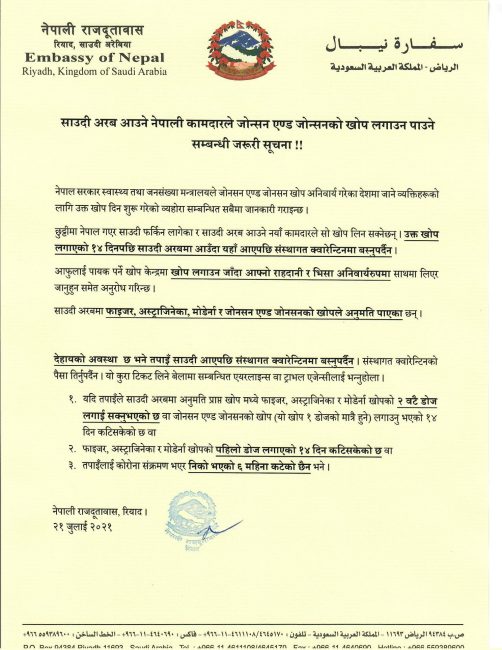 नेपाली राजदूतावास
रियाद, साउदी अरेबिया
Embassy of Nepal
Riyadh, Kingdom of Saudi Arabia
سـفـارة نـيـبـال
الرياض - المملكة العربية السعودية
साउदी अरब आउने नेपाली कामदारले जोन्सन एण्ड जोन्सनको खोप लगाउन पाउने
सम्बन्धी जरूरी सूचना !!
नेपाल सरकार स्वास्थ्य तथा जनसंख्या मन्त्रालयले जोनसन एण्ड जोनसन खोप अनिवार्य गरेका देशमा जाने व्यक्तिहरूको
लागि उक्त खोप दिन शुरू गरेको व्यहोरा सम्बन्धित सबैमा जानकारी गराइन्छ ।
छुट्टीमा नेपाल गएर साउदी फर्किन लागेका र साउदी अरब आउने नयाँ कामदारले सो खोप लिन सक्नेछन् । उक्त खोप
लगाएको १४ दिनपछि साउदी अरबमा आउँदा यहाँ आएपछि संस्थागत क्वारेन्टिनमा बस्नुपर्दैन ।
आफुलाई पायक पर्ने खोप केन्द्रमा खोप लगाउन जाँदा आफ्नो राहदानी र भिसा अनिवार्यरुपमा साथमा लिएर
जानुहुन समेत अनुरोध गरिन्छ ।
साउदी अरबमा फाइजर, अस्ट्राजिनेका, मोडेर्ना र जोनसन एण्ड जोनसनको खोपले अनुमति पाएका छन् ।
देहायको अवस्था छ भने तपाइँ साउदी आएपछि संस्थागत क्वारेन्टिनमा बस्नुपर्दैन । संस्थागत क्वारेन्टिनको
पैसा तिर्नुपर्दैन । यो कुरा टिकट लिने बेलामा सम्बन्धित एयरलाइन्स वा ट्राभल एजेन्सीलाई भन्नुहोला ।
१. यदि तपाइँले साउदी अरबमा अनुमति प्राप्त खोप मध्ये फाइजर, अस्ट्राजिनेका र मोडेर्ना खोपको २ वटै डोज
लगाई सक्नुभएको छ वा जोनसन एण्ड जोनसनको खोप (यो खोप १ डोजको मात्रै हुने) लगाउनु भएको १४
दिन कटिसकेको छ वा
२. फाइजर, अस्ट्राजिनेका र मोडेर्ना खोपको पहिलो डोज लगाएको १४ दिन कटिसकेको छ वा
३. तपाइँलाई कोरोना संक्रमण भएर निको भएको ६ महिना कटेको छैन भने ।
नेपाली राजदूतावास, रियाद ।
२१ जुलाई २०२१
ص.ب ٩٤٣٨٤ الرياض ١١٦٩٣ - المملكة العربية السعودية - تلفون : ٤٦٤٥١٧٠/٤٦١١١٠٨-١١-٩٦٦+ - فاكس : ٤٦٤٠٦٩٠-١١-٩٦٦+ - الخط الساخن : ٥٥٩٣٨٩٦٠٠ ٩٦٦+
P.O. Box 94384 Riyadh 11693 - Saudi Arabia - Tel : +966 11 4611108/4645170 - Fax : +966 11 4640690 - Hotline : +966 559389600